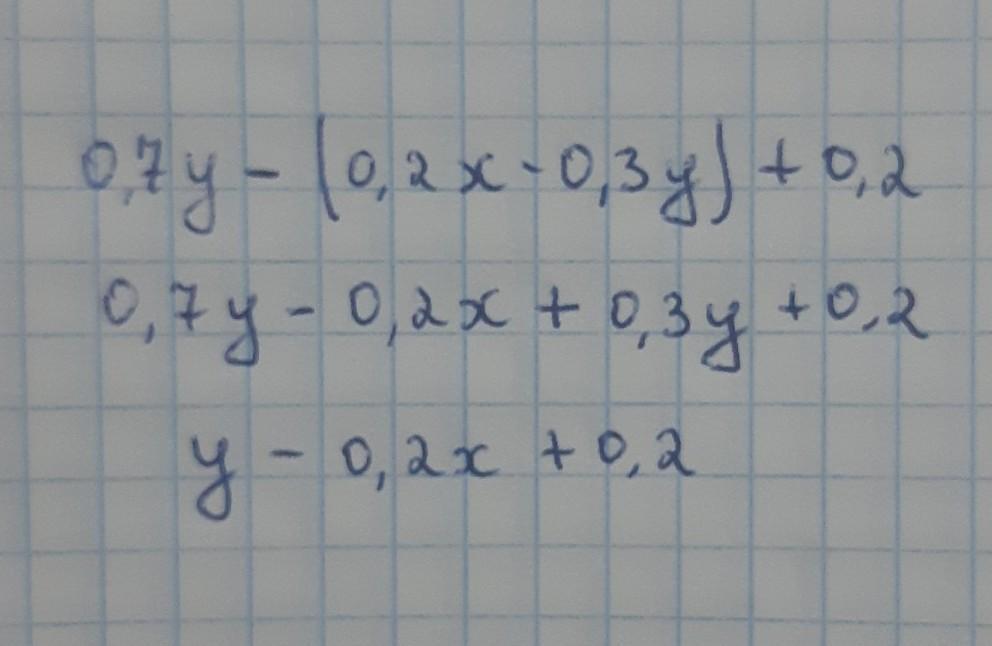 0,7y - (0,2x - 0,3y) + 0,2
0,7y - 0,2x + 0,3y + 0,2
y - 0,2x + 0,2